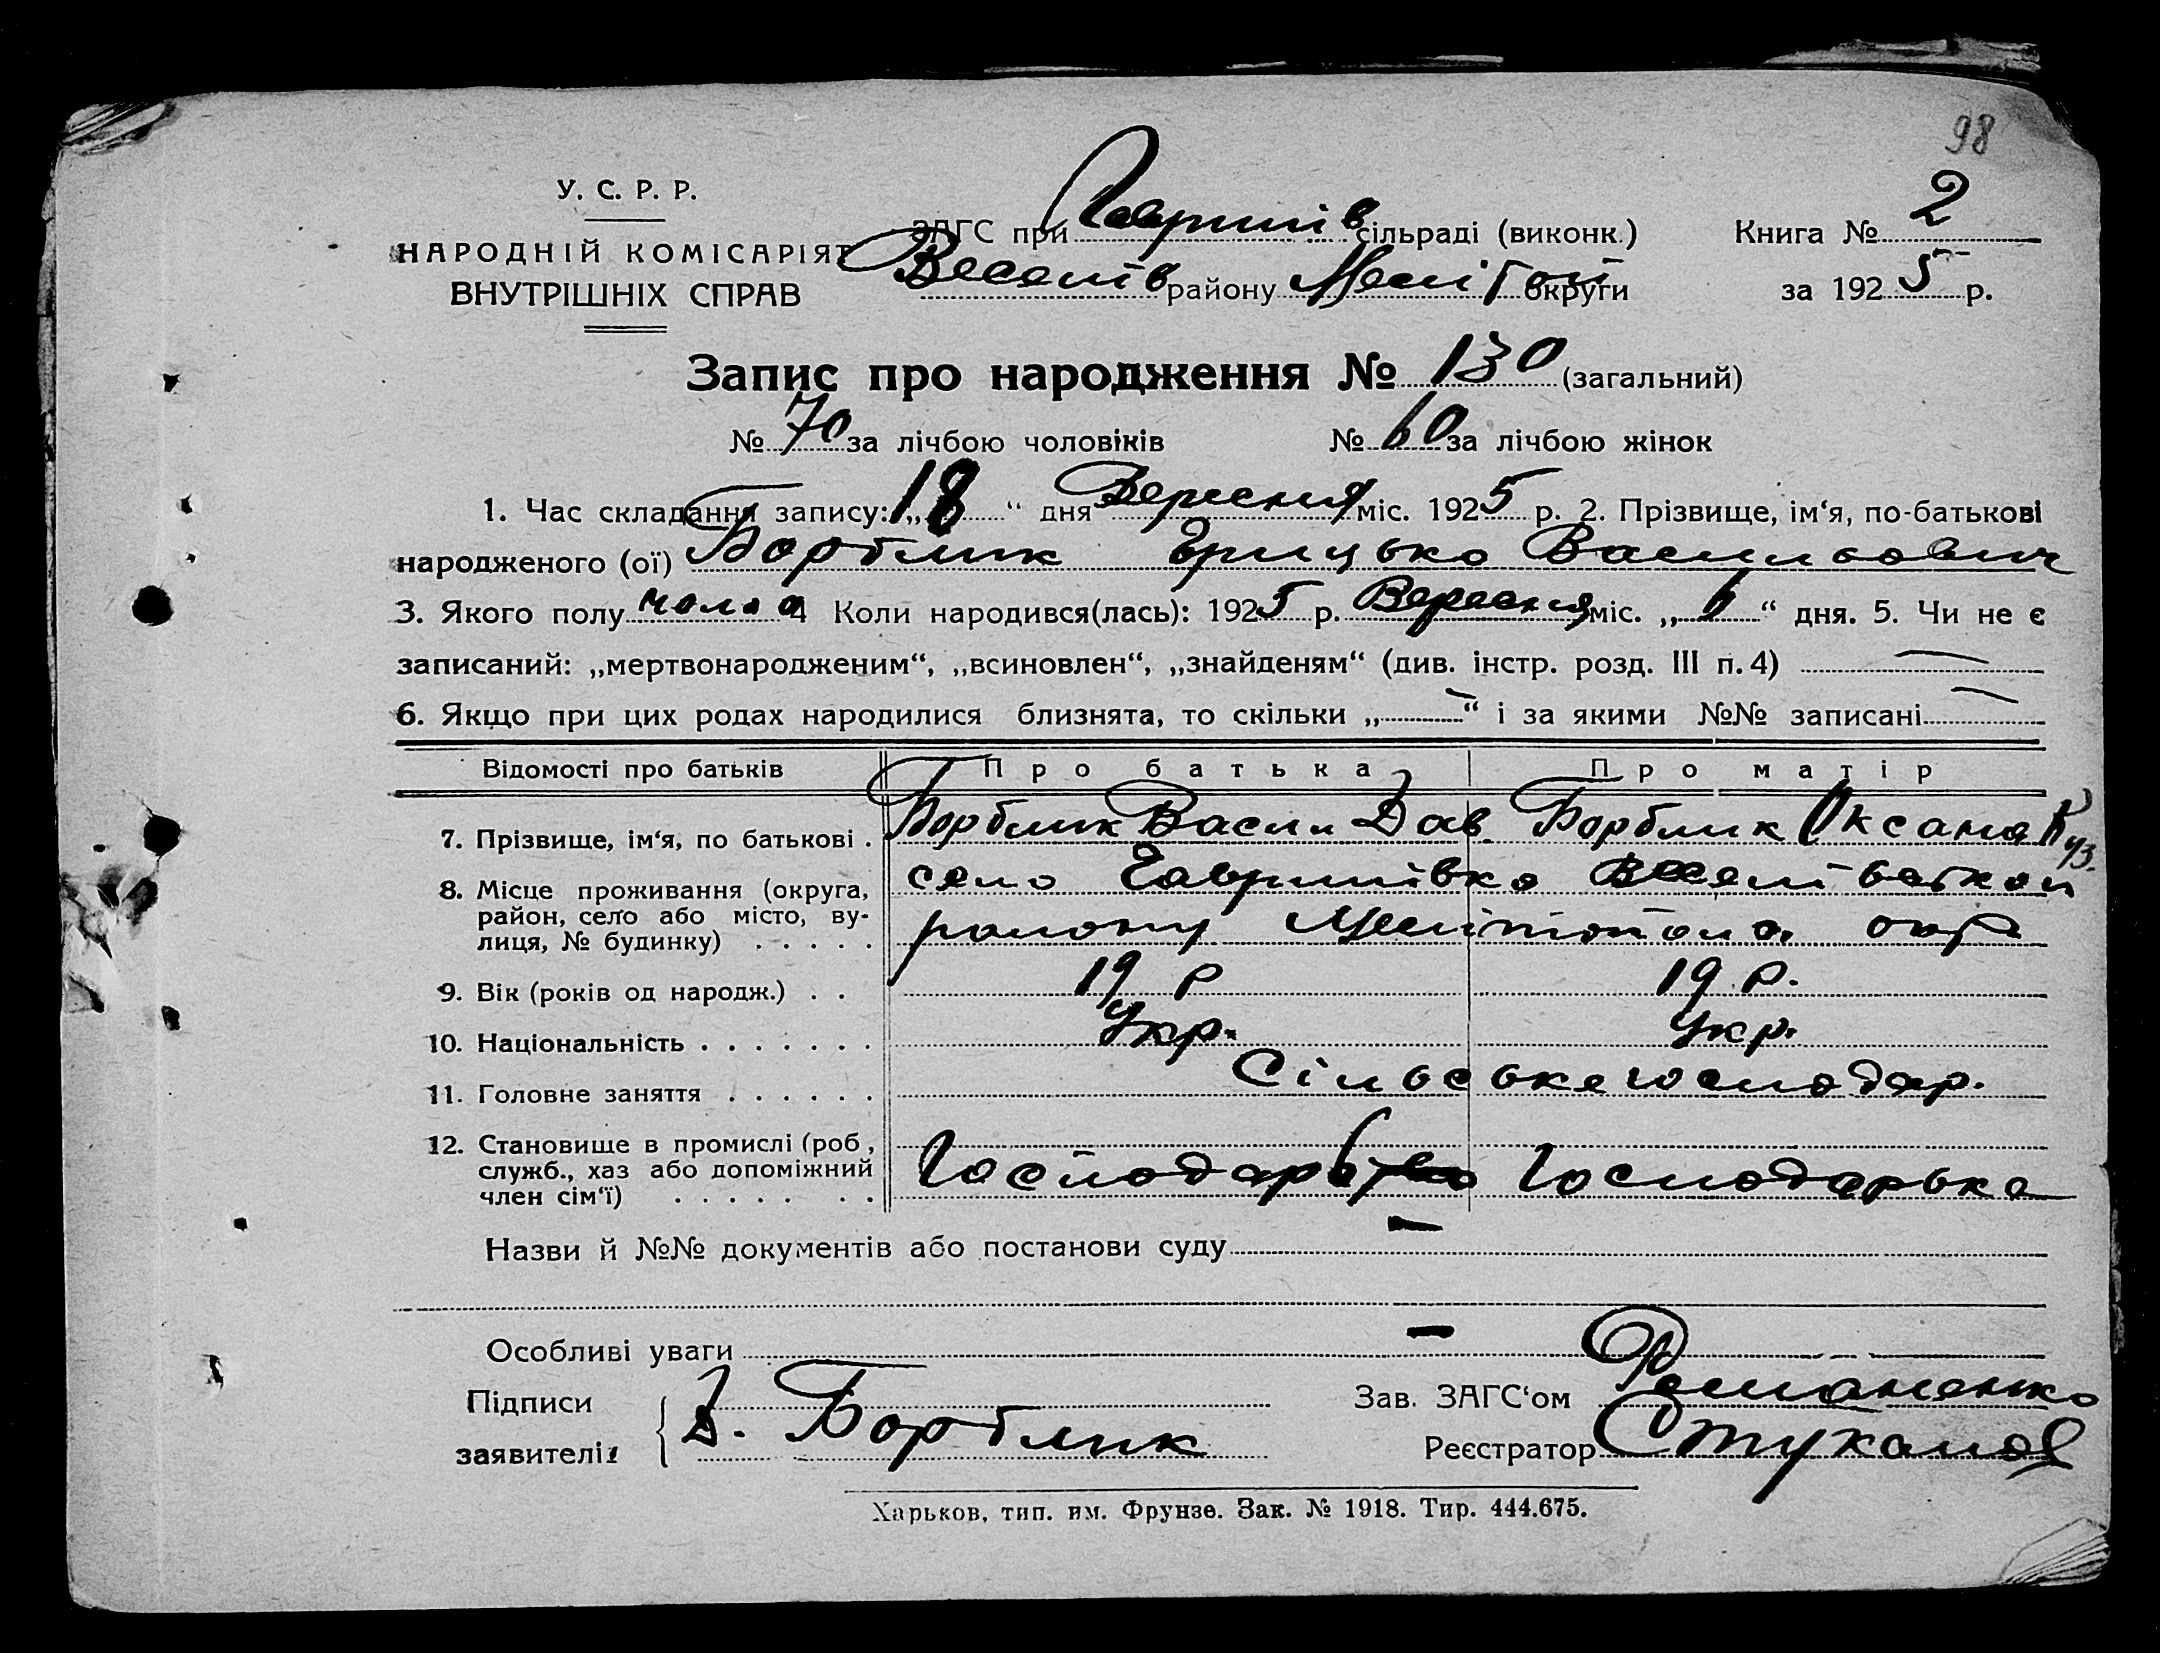 98
У. С. Р. Р.
НАРОДНІЙ КОМІСАРІЯТ
ВНУТРІШНІХ СПРАВ
ЗАГС при Гаврилів сільраді (виконк.)
Веселів району Меліт округи
Книга № 2
за 1925 р.
Запис про народження № 130 (загальний)
№ 70 за лічбою чоловіків № 60 за лічбою жінок
1. Час складання запису: „18“ дня Вересня міс. 1925 р. 2. Прізвище, ім‘я, по-батькові
народженого (ої) Борблик Грицько Васильович
3. Якого полу чолов 4 Коли народився(лась): 1925 р. Вересня міс. „6“ дня. 5. Чи не є
записаний: „мертвонародженим“, „всиновлен“, „знайденям“ (див. інстр. розд. III п. 4) —
6. Якщо при цих родах народилися близнята, то скільки „—“ і за якими №№ записані —
Відомості про батьків Про батька Про матір
7. Прізвище, ім‘я, по батькові . Борблик Васил Дав. Борблик Оксана Куз.
8. Місце проживання (округа, район, село або місто, вулиця, № будинку) . . . . . село Гаврилівка
району окр
9. Вік (років од народж.) . . 19 р 19 р.
10. Національність . . . . . . . Укр. Укр.
11. Головне заняття . . . . . . Сільське господар.
12. Становище в промислі (роб., служб., хаз або допоміжний член сім‘ї) . . . . . . . Господарька
Назви й №№ документів або постанови суду —
Особливі уваги —
Підписи
заявителів
Д. Борблик
Зав. ЗАГС‘ом Романенко
Реєстратор
Харьков, тип. им. Фрунзе. Зак. № 1918. Тир. 444.675.